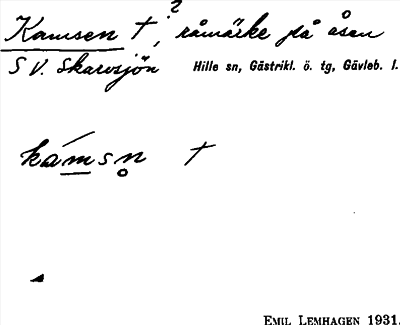 Kamsen †,? råmärke på åsen
S V. Skarvsjön Hille sn, Gästrikl. ö. tg, Gävleb. l.
kámsn̥ †
EMIL LEMHAGEN 1931.